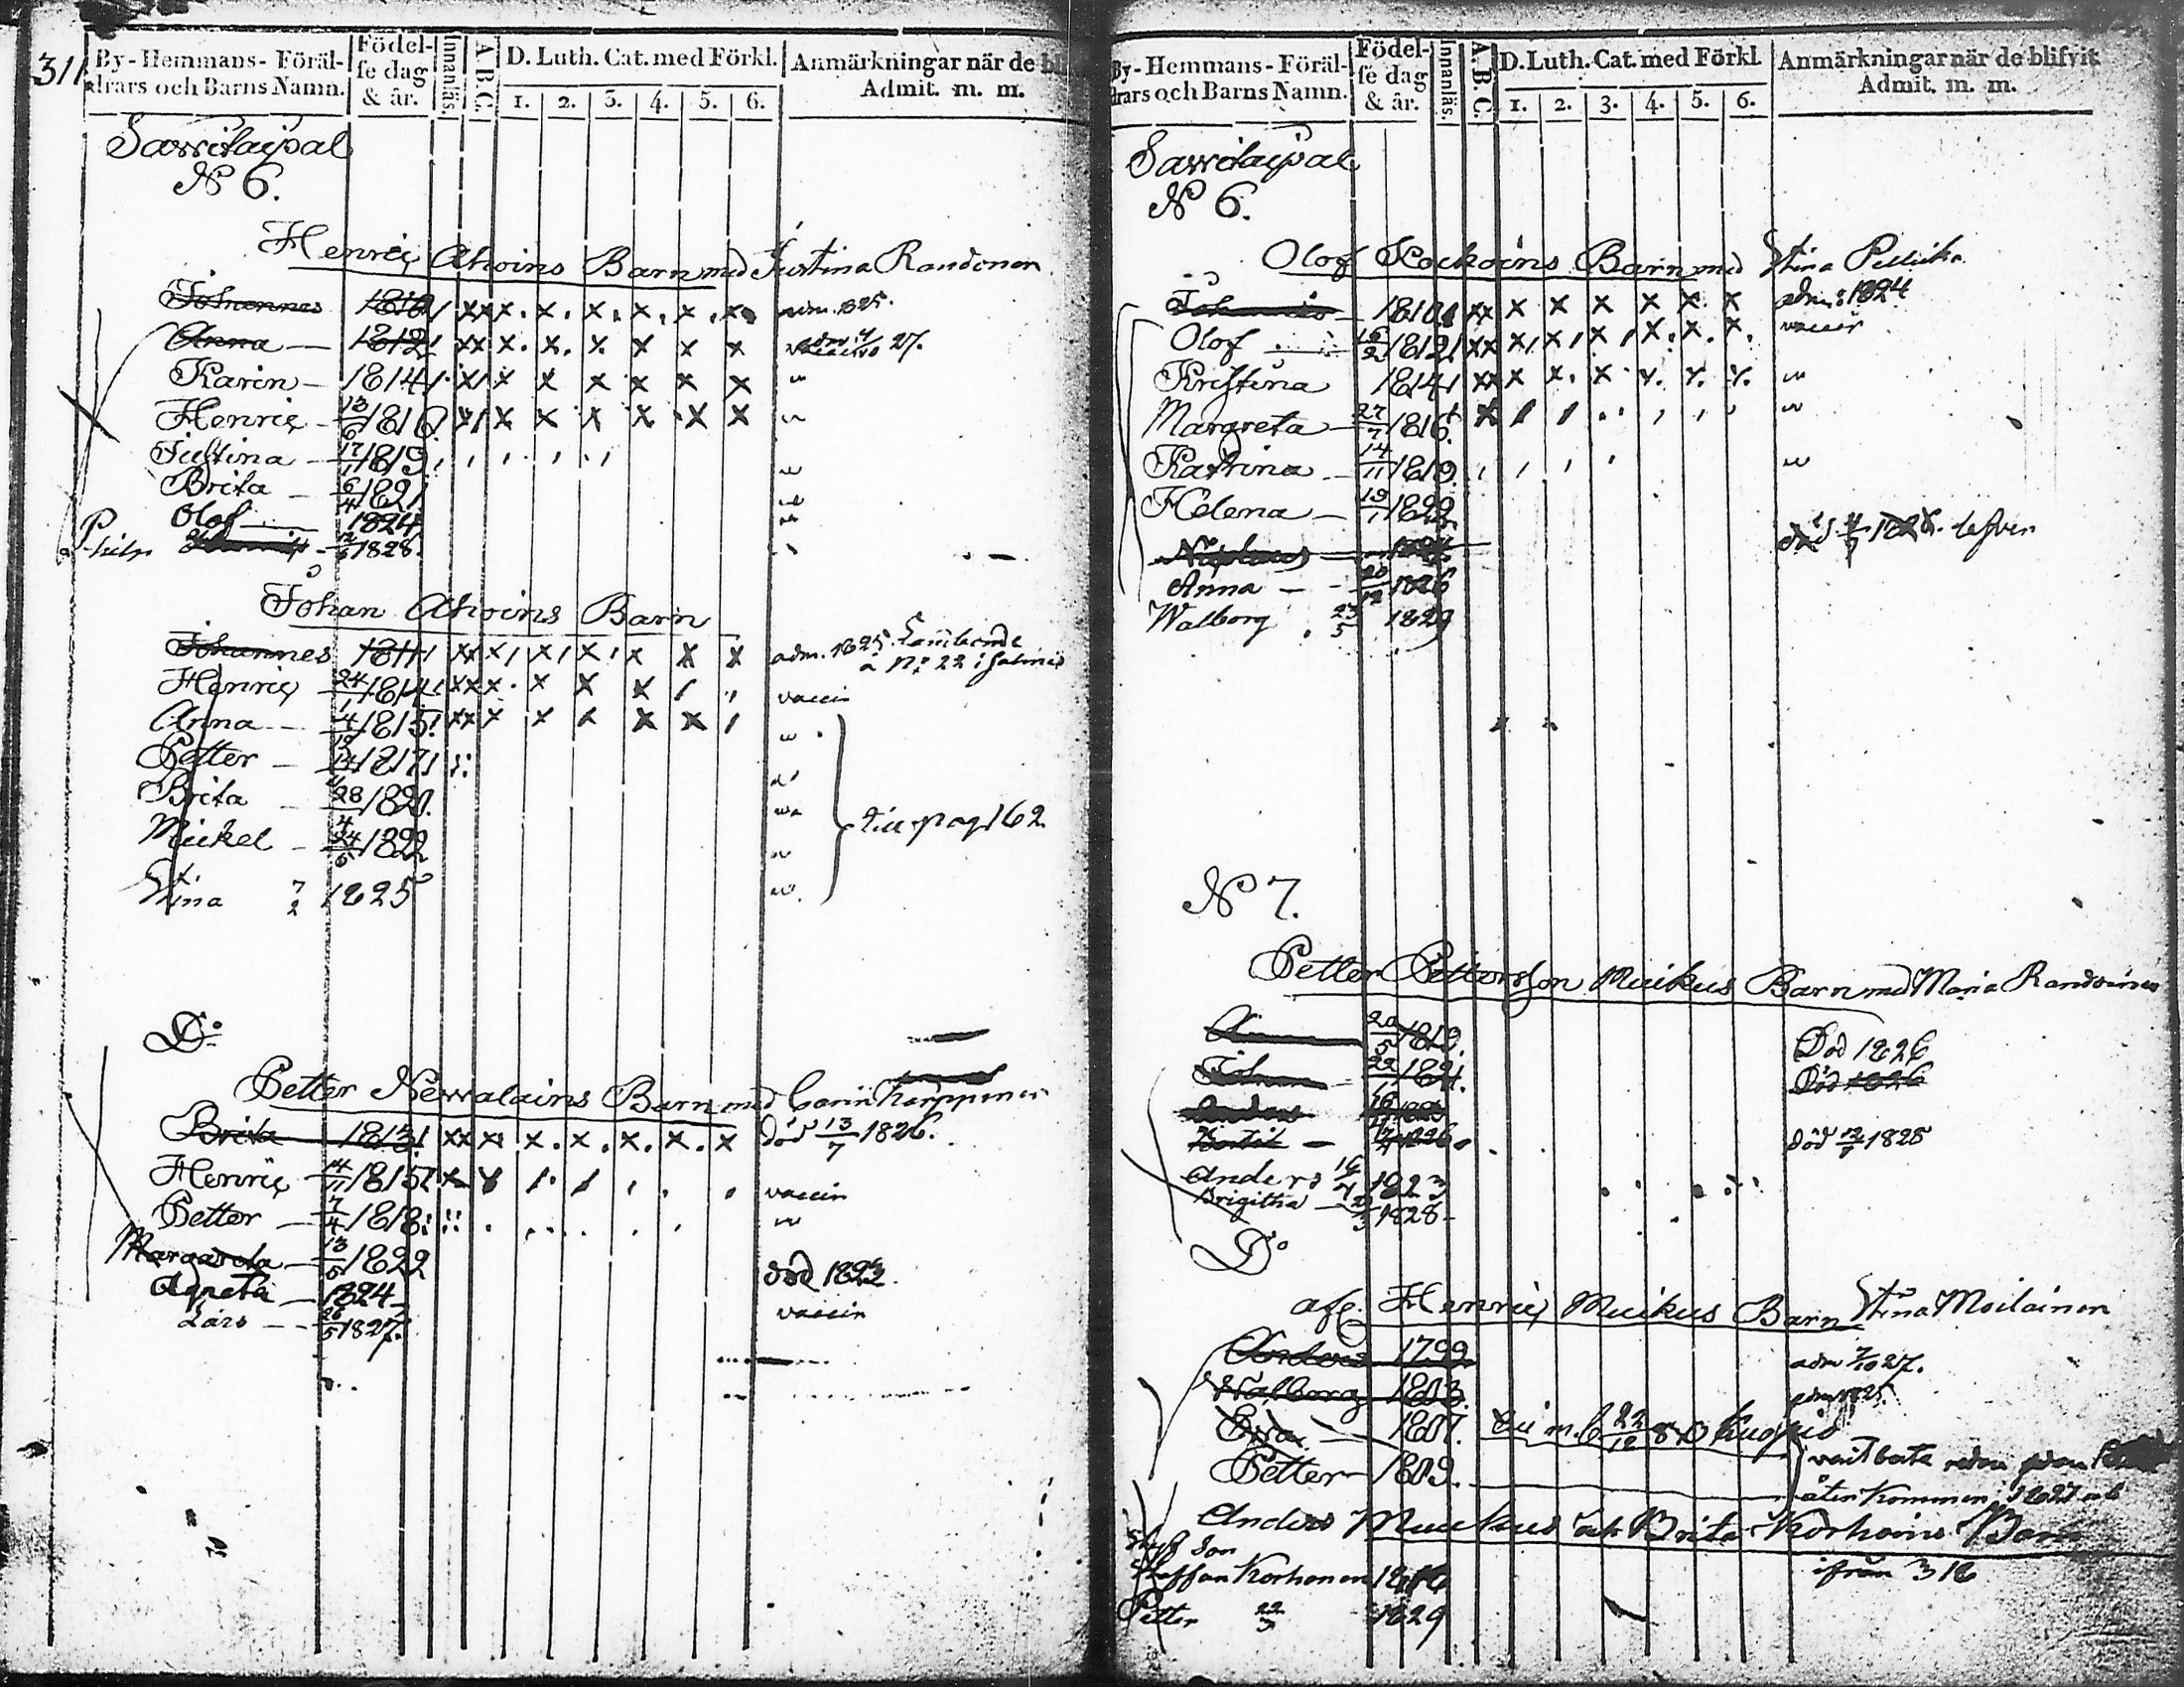 311
By-Hemmans-Föräl-drars och Barns Namn. Födel-se dag & år. Innanläs. A B C. D. Luth. Cat. med Förkl. 1. 2. 3. 4. 5. 6. Anmärkningar när de bl Admit. m. m.
Sawitaipal
N 6.
Henric Ahoins Barn med Justina Randonen
Johannes 1810 adm. 1825.
Anna 1812 27.
Karin 1814
Henric 13/6 1816
Justina 17/1 1819
Brita 6/4 1821
Olof 1824
Philip 12/6 1828.
Johan Ahoins Barn
Johannes 1811 adm. 1825.
a No 22 i
Henric 24/1 1814 vaccin
Anna 4/12 1815
Petter 14/11 1817
Brita 28/4 1820.
Mickel 24/5 1822
till pag 162
Stina 7/2 1825
Do
Petter Newalains Barn med Carin Karppinen
Brita 1813 död 13/7 1826.
Henric 14/11 1815 vaccin
Petter 7/4 1818
Margareta 13/5 1822 död 1822.
Agneta 1824 vaccin
Lars 26/5 1827.
By-Hemmans-Föräl-drars och Barns Namn. Födel-se dag & år. Innanläs. A. B. C. D. Luth. Cat. med Förkl. 1. 2. 3. 4. 5. 6. Anmärkningar när de blifvit Admit. m. m.
Sawitaipal
N 6.
Olof Kockoins Barn med Stina Pellicka
Johannes 1810 adm: 1824
Olof 16/2 1812 vaccin
Kristina 1814
Margreta 27/7 1816
Katrina 14/11 1819.
Helena 19/1 1822
lefver
Anna 20/12 1826
Walborg 23/5 1829
N 7.
Petter Pettersson Muikus Barn med Maria Randoinen
20/5 1819. Död 1826
Johan 22/ 1821. Död 1826
Anders 16/
12/7 död 12/7 1828
Anders 16/7 1823
Brigitha 1828
Do
afl. Henric Muikus Barn Stina Moilainen
Anders 1799 adm 7/10 27.
Walborg 1803. adm 1825
Ewa 1807. 22/12 Kuopio
Petter 1809. varit borta redan
återkommen 1827
Anders Muikus och Brita Korhoins Barn
Styf son
Staffan Korhonen 1816 ifrån 316
Petter 22/3 1829